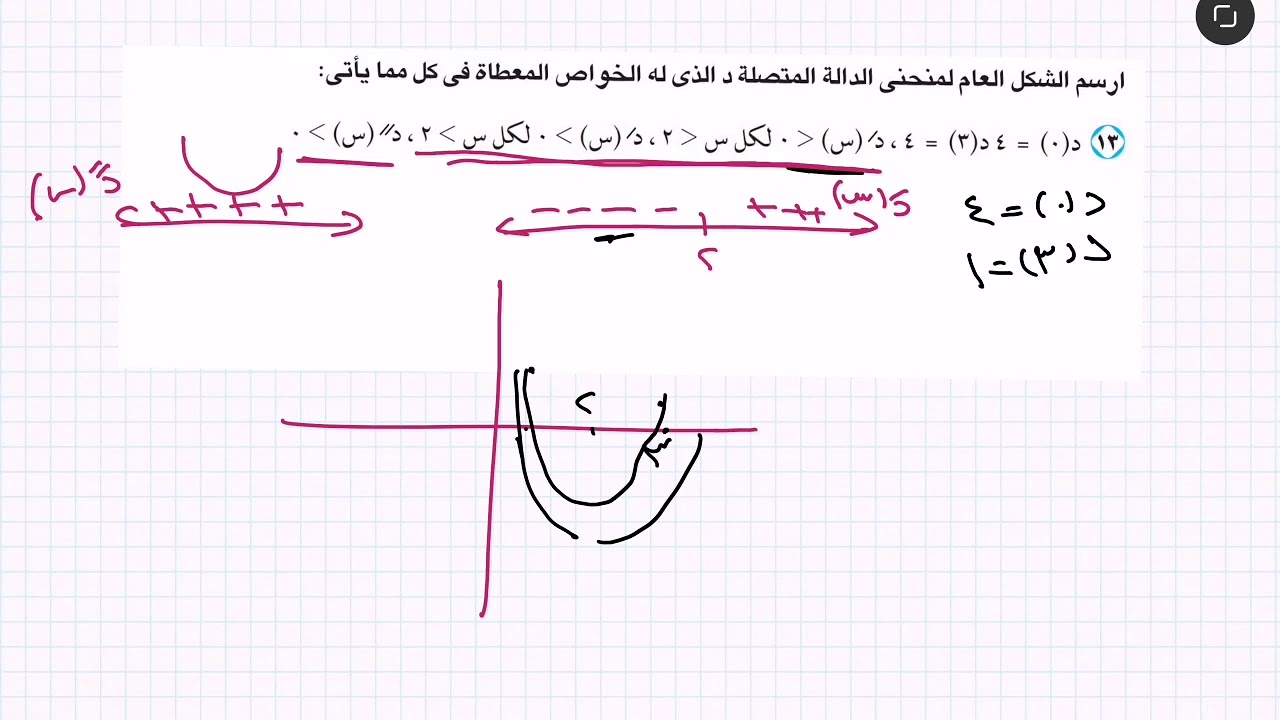 ارسم الشكل العام لمنحنى الدالة المتصلة د الذى له الخواص المعطاة فى كل مما يأتى:
١٣ د(٠) = ٤ د(٣) = ٤ ، دَ(س) > ٠ لكل س > ٢ ، دَ(س) < ٠ لكل س < ٢ ، د//(س) > ٠
د(٠) = ٤
د(٣) = ١
د/(س) + + + − − − −
٢
د//(س) + + + +
٢
٣